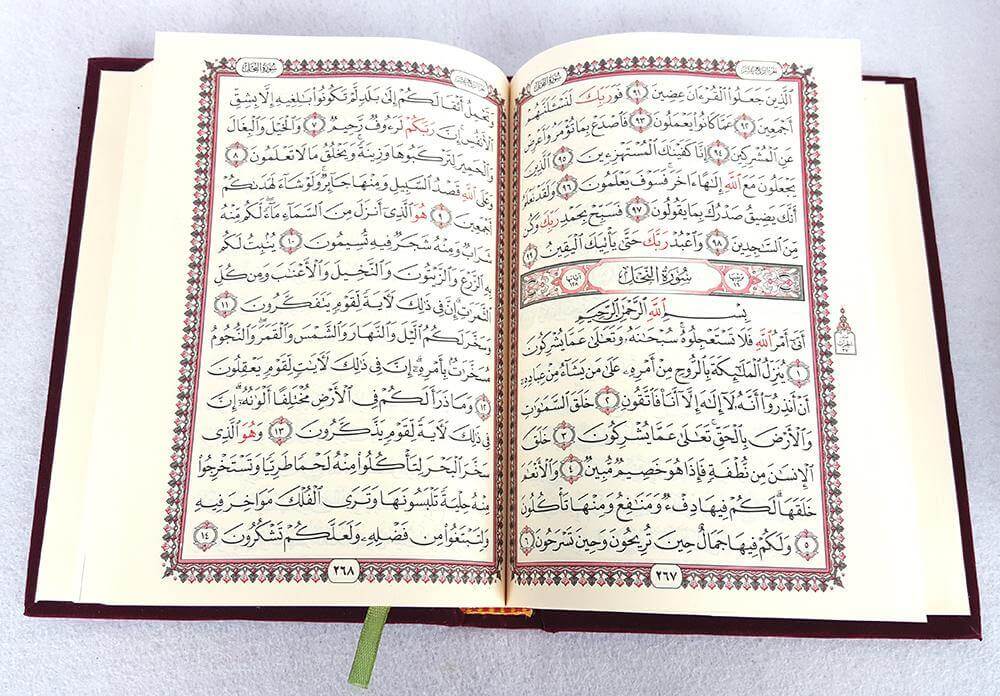 الجزء الرابع عشر
سُورَةُ النَّحْلِ
ٱلَّذِينَ جَعَلُوا۟ ٱلْقُرْءَانَ عِضِينَ ٩١ فَوَرَبِّكَ لَنَسْـَٔلَنَّهُمْ
أَجْمَعِينَ ٩٢ عَمَّا كَانُوا۟ يَعْمَلُونَ ٩٣ فَٱصْدَعْ بِمَا تُؤْمَرُ وَأَعْرِضْ
عَنِ ٱلْمُشْرِكِينَ ٩٤ إِنَّا كَفَيْنَٰكَ ٱلْمُسْتَهْزِءِينَ ٩٥ ٱلَّذِينَ
يَجْعَلُونَ مَعَ ٱللَّهِ إِلَٰهًا ءَاخَرَ فَسَوْفَ يَعْلَمُونَ ٩٦ وَلَقَدْ نَعْلَمُ
أَنَّكَ يَضِيقُ صَدْرُكَ بِمَا يَقُولُونَ ٩٧ فَسَبِّحْ بِحَمْدِ رَبِّكَ وَكُن
مِّنَ ٱلسَّٰجِدِينَ ٩٨ وَٱعْبُدْ رَبَّكَ حَتَّىٰ يَأْتِيَكَ ٱلْيَقِينُ ٩٩
ترتيبها ١٦ سُورَةُ النَّحْلِ آياتها ١٢٨
بِسْمِ ٱللَّهِ ٱلرَّحْمَٰنِ ٱلرَّحِيمِ
أَتَىٰٓ أَمْرُ ٱللَّهِ فَلَا تَسْتَعْجِلُوهُ ۚ سُبْحَٰنَهُۥ وَتَعَٰلَىٰ عَمَّا يُشْرِكُونَ
١ يُنَزِّلُ ٱلْمَلَٰٓئِكَةَ بِٱلرُّوحِ مِنْ أَمْرِهِۦ عَلَىٰ مَن يَشَآءُ مِنْ عِبَادِهِۦٓ
أَنْ أَنذِرُوٓا۟ أَنَّهُۥ لَآ إِلَٰهَ إِلَّآ أَنَا۠ فَٱتَّقُونِ ٢ خَلَقَ ٱلسَّمَٰوَٰتِ
وَٱلْأَرْضَ بِٱلْحَقِّ ۚ تَعَٰلَىٰ عَمَّا يُشْرِكُونَ ٣ خَلَقَ
ٱلْإِنسَٰنَ مِن نُّطْفَةٍ فَإِذَا هُوَ خَصِيمٌ مُّبِينٌ ٤ وَٱلْأَنْعَٰمَ
خَلَقَهَا ۗ لَكُمْ فِيهَا دِفْءٌ وَمَنَٰفِعُ وَمِنْهَا تَأْكُلُونَ
٥ وَلَكُمْ فِيهَا جَمَالٌ حِينَ تُرِيحُونَ وَحِينَ تَسْرَحُونَ ٦
٢٦٧
سُورَةُ النَّحْلِ
وَتَحْمِلُ أَثْقَالَكُمْ إِلَىٰ بَلَدٍ لَّمْ تَكُونُوا۟ بَٰلِغِيهِ إِلَّا بِشِقِّ
ٱلْأَنفُسِ ۚ إِنَّ رَبَّكُمْ لَرَءُوفٌ رَّحِيمٌ ٧ وَٱلْخَيْلَ وَٱلْبِغَالَ
وَٱلْحَمِيرَ لِتَرْكَبُوهَا وَزِينَةً ۚ وَيَخْلُقُ مَا لَا تَعْلَمُونَ ٨
وَعَلَى ٱللَّهِ قَصْدُ ٱلسَّبِيلِ وَمِنْهَا جَآئِرٌ ۚ وَلَوْ شَآءَ لَهَدَىٰكُمْ
أَجْمَعِينَ ٩ هُوَ ٱلَّذِىٓ أَنزَلَ مِنَ ٱلسَّمَآءِ مَآءً ۖ لَّكُم مِّنْهُ
شَرَابٌ وَمِنْهُ شَجَرٌ فِيهِ تُسِيمُونَ ١٠ يُنۢبِتُ لَكُم
بِهِ ٱلزَّرْعَ وَٱلزَّيْتُونَ وَٱلنَّخِيلَ وَٱلْأَعْنَٰبَ وَمِن كُلِّ
ٱلثَّمَرَٰتِ ۗ إِنَّ فِى ذَٰلِكَ لَءَايَةً لِّقَوْمٍ يَتَفَكَّرُونَ ١١
وَسَخَّرَ لَكُمُ ٱلَّيْلَ وَٱلنَّهَارَ وَٱلشَّمْسَ وَٱلْقَمَرَ ۖ وَٱلنُّجُومُ
مُسَخَّرَٰتٌۢ بِأَمْرِهِۦٓ ۗ إِنَّ فِى ذَٰلِكَ لَءَايَٰتٍ لِّقَوْمٍ يَعْقِلُونَ
١٢ وَمَا ذَرَأَ لَكُمْ فِى ٱلْأَرْضِ مُخْتَلِفًا أَلْوَٰنُهُۥٓ ۗ إِنَّ
فِى ذَٰلِكَ لَءَايَةً لِّقَوْمٍ يَذَّكَّرُونَ ١٣ وَهُوَ ٱلَّذِى
سَخَّرَ ٱلْبَحْرَ لِتَأْكُلُوا۟ مِنْهُ لَحْمًا طَرِيًّا وَتَسْتَخْرِجُوا۟
مِنْهُ حِلْيَةً تَلْبَسُونَهَا وَتَرَى ٱلْفُلْكَ مَوَاخِرَ فِيهِ
وَلِتَبْتَغُوا۟ مِن فَضْلِهِۦ وَلَعَلَّكُمْ تَشْكُرُونَ ١٤
٢٦٨